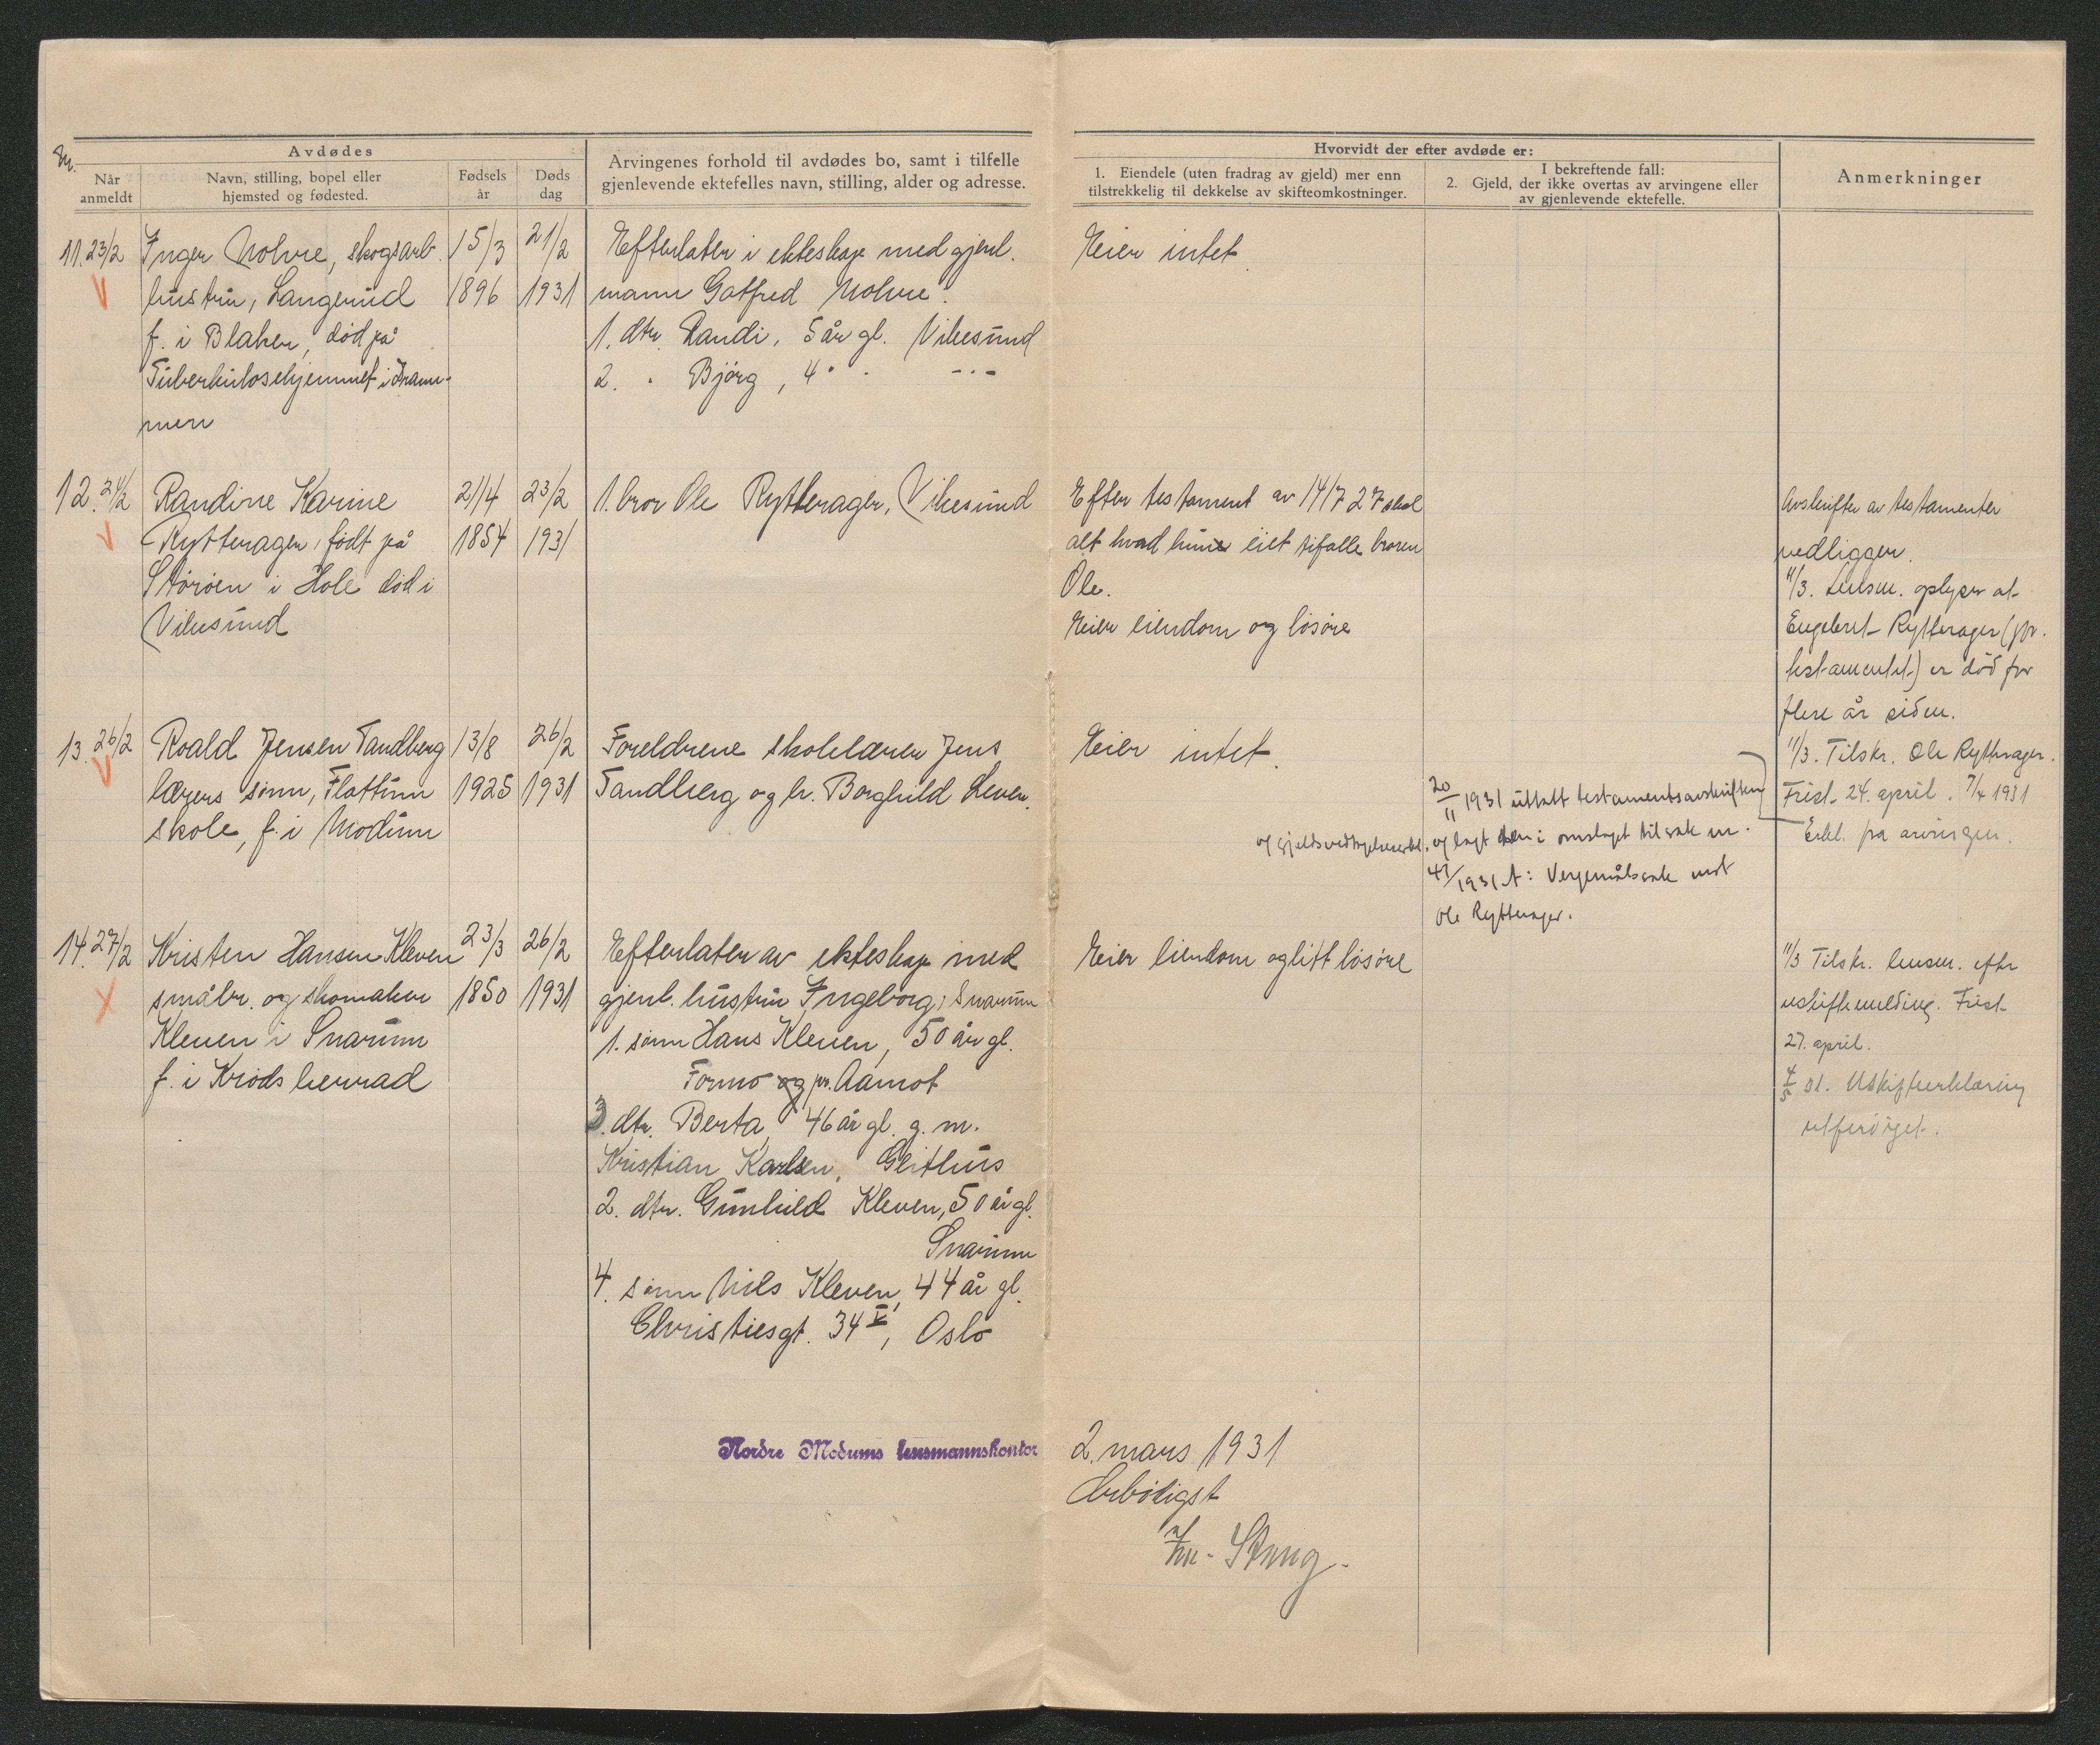 Avdødes
Nr.
Når anmeldt
Navn, stilling, bopel eller hjemsted og fødested.
Fødsels år
Døds dag
Arvingenes forhold til avdødes bo, samt i tilfelle
gjenlevende ektefelles navn, stilling, alder og adresse.
Hvorvidt der efter avdøde er:
1. Eiendele (uten fradrag av gjeld) mer enn
tilstrekkelig til dekkelse av skifteomkostninger.
I bekreftende fall:
2. Gjeld, der ikke overtas av arvingene eller
av gjenlevende ektefelle.
Anmerkninger
11. 23/2
Inger Mohre, skogsarb.
hustru, Langerud
f. i Blaker, død på
Tuberkulosehjemmet i Dram-
men
15/3
1896
21/2
1931
Efterlater i ekteskap med gjenl.
mann Gotfred Mohre:
1. dtr. Randi, 5 år gl. Vikesund
2. " Bjørg, 4 " " -"-
Eier intet.
12. 24/2
Randine Karine
Rytterager, født på
Storøen i Hole død i
Vikesund
21/4
1854
23/2
1931
1. bror Ole Rytterager, Vikesund
Efter testament av 14/7 27 skal
alt hvad hun eiet tifalle broren
Ole.
Eier eiendom og løsøre
Avskrifter av testamenter
vedligger.
11/3. Lensm. oplyser at
Engebret Rytterager (jfr.
testamentet) er død for
flere år siden.
11/3. Tilskr. Ole Rytterager.
Frist 24. april. 7/4 1931
Erkl. fra arvingen.
13. 26/2
Roald Jensen Tandberg
lærers sønn, Flattum
skole, f. i Modum
13/8
1925
26/2
1931
Foreldrene skolelærer Jens
Tandberg og h. Borghild Leven.
Eier intet.
20/11 1931 uttatt testamentsavskriften
og gjeldsvedtagelseserkl. og lagt den i omslaget til sak nr.
47/1931 A: Vergemålssak mot
Ole Rytterager.
14. 27/2
Kristen Hansen Kleven
småbr. og skomaker
Kleven i Snarum
f. i Krødsherrad
23/3
1850
26/2
1931
Efterlater av ekteskap med
gjenl. hustru Ingeborg, Snarum
1. sønn Hans Kleven, 50 år gl.
Formo og pr. Aamot
3. dtr. Berta, 46 år gl. g. m.
Kristian Karlsen, Geithus
2. dtr. Gunhild Kleven, 50 år gl.
Snarum
4. sønn Nils Kleven, 44 år gl.
Christiesgt. 34 V, Oslo
Eier eiendom og litt løsøre
11/3 Tilskr. lensm. efter
uskiftemelding. Frist
27. april.
4/5 st. Uskifteerklæring
utferdiget.
Nordre Modums lensmannskontor 2. mars 1931
Ærbødigst